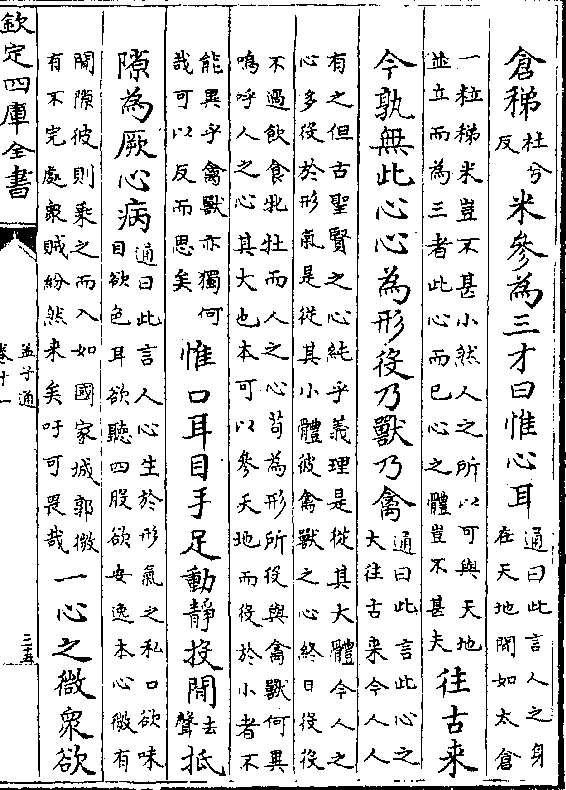 倉稊
杜兮
反
米參為三才曰惟心耳
通曰此言人之身
在天地間如太倉
一粒稊米豈不甚小然人之所以可與天地
並立而為三者此心而已心之體豈不甚夫
往古来
今孰無此心心為形役乃獸乃禽
通曰此言此心之
大往古来今人人
有之但古聖賢之心純乎義理是從其大體今人之
心多役於形氣是從其小體彼禽獸之心終日役役
不過飲食牝牡而人之心苟為形所役與禽獸何異
嗚呼人之心其大也本可以參天地而役於小者不
能異乎禽獸亦獨何
哉可以反而思矣
惟口耳目手足動靜投閒
去
聲
抵
隙為厥心病
通曰此言人心生於形氣之私口欲味
目欲色耳欲聽四股欲安逸本心微有
閒隙彼則乘之而入如國家城郭微
有不完處衆賊紛然来矣吁可畏哉
一心之微衆欲
欽定四庫全書
孟子通
卷十一
三五